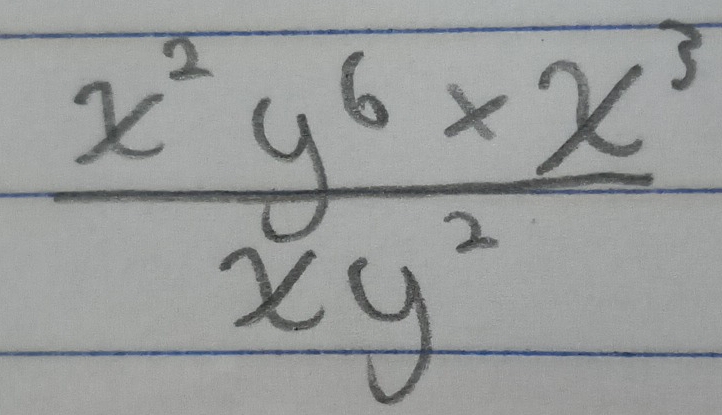 x² y⁶ × x³
xy²